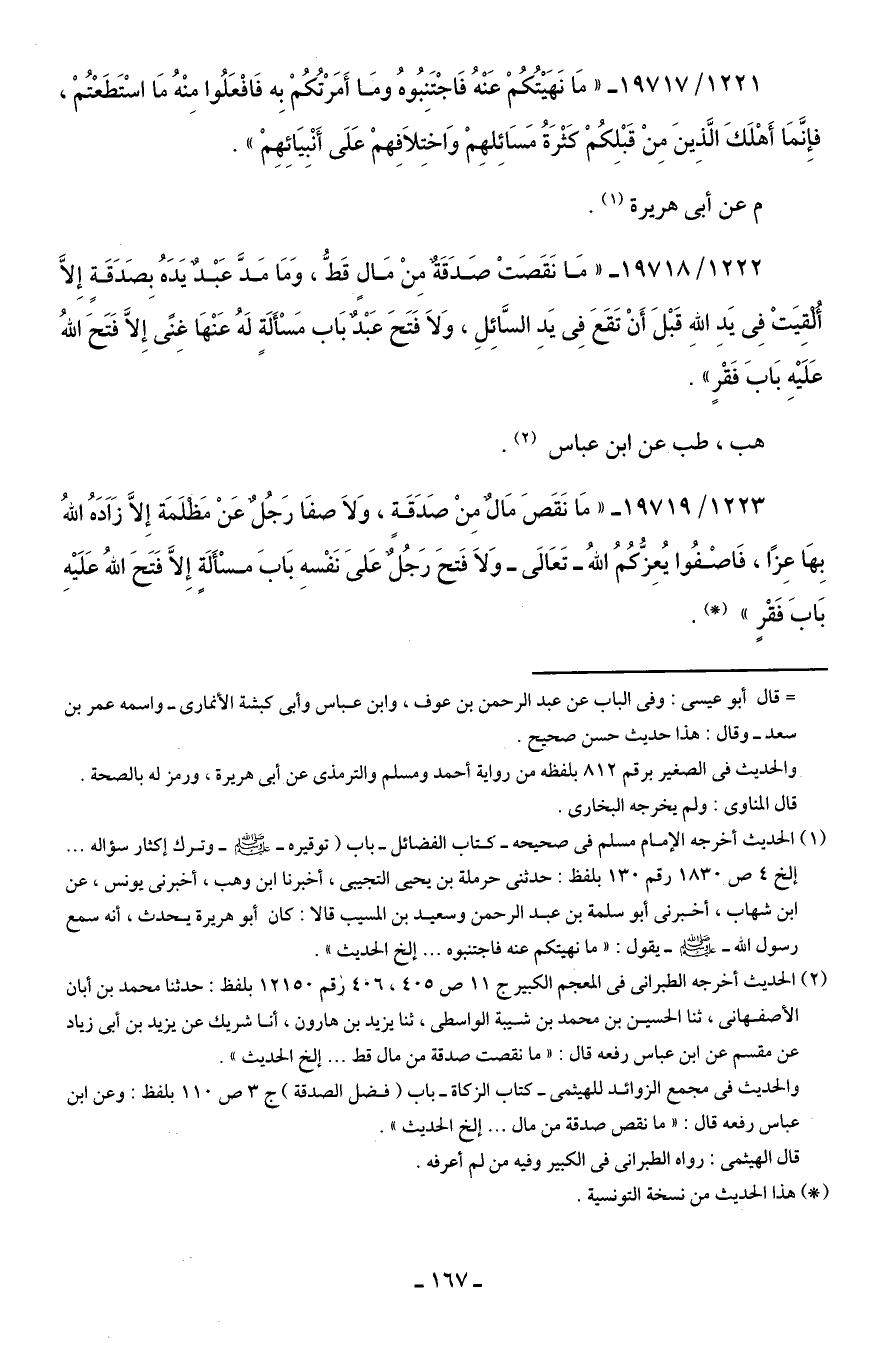 ١٩٧١٧/١٢٢١ـ « مَا نَهَيْتُكُمْ عَنْهُ فَاجْتَنِبُوهُ ومَا أَمَرْتُكُمْ بِه فَافْعَلُوا مِنْهُ مَا اسْتَطَعْتُمْ ،
فإِنَّمَا أَهْلَكَ الَّذِينَ مِنْ قَبْلِكُمْ كَثْرَةُ مَسَائِلهِمْ وَاخْتِلاَفِهِمْ عَلَى أَنْبِيَائِهِمْ » .
م عن أبى هريرة (١) .
١٩٧١٨/١٢٢٢ـ « مَا نَقَصَتْ صَدَقَةٌ مِنْ مَالٍ قَطُّ ، وَمَا مَدَّ عَبْدٌ يَدَهُ بِصَدَقَةٍ إِلاَّ
أُلْقِيَتْ فِى يَدِ اللهِ قَبْلَ أَنْ تَقَعَ فِى يَدِ السَّائِلِ ، وَلاَ فَتَحَ عَبْدٌ بَاب مَسْأَلَةٍ لَهُ عَنْهَا غِنًى إِلاَّ فَتَحَ اللهُ
عَلَيْهِ بَابَ فَقْرٍ» .
هب ، طب عن ابن عباس (٢) .
١٩٧١٩/١٢٢٣ـ « مَا نَقَصَ مَالٌ مِنْ صَدَقَةٍ ، وَلاَ صفَا رَجُلٌ عَنْ مَظْلَمَة إِلاَّ زَادَهُ اللهُ
بِهَا عِزًا ، فَاصْفُوا يُعِزُّكُمُ اللهُ ـ تَعَالَى ـ وَلاَ فَتحَ رَجُلٌ عَلىَ نَفْسِه بَابَ مَسْأَلَةٍ إِلاَّ فَتَحَ اللهُ عَلَيْهِ
بَابَ فَقْرٍ » (*) .
= قال أبو عيسى : وفى الباب عن عبد الرحمن بن عوف ، وابن عباس وأبى كبشة الأنمارى ـ واسمه عمر بن
سعد ـ وقال : هذا حديث حسن صحيح .
والحديث فى الصغير برقم ٨١٢ بلفظه من رواية أحمد ومسلم والترمذى عن أبى هريرة ، ورمز له بالصحة .
قال المناوى : ولم يخرجه البخارى .
(١) الحديث أخرجه الإمام مسلم فى صحيحه ـ كتاب الفضائل ـ باب ( توقيره ـ ﷺ ـ وترك إكثار سؤاله ...
إلخ ٤ ص ١٨٣٠ رقم ١٣٠ بلفظ : حدثنى حرملة بن يحيى التجيبى ، أخبرنا ابن وهب ، أخبرنى يونس ، عن
ابن شهاب ، أخبرنى أبو سلمة بن عبد الرحمن وسعيد بن المسيب قالا : كان أبو هريرة يحدث ، أنه سمع
رسول الله ـ ﷺ ـ يقول : « ما نهيتكم عنه فاجتنبوه ... إلخ الحديث » .
(٢) الحديث أخرجه الطبرانى فى المعجم الكبير ج ١١ ص ٤٠٥ ، ٤٠٦ رقم ١٢١٥٠ بلفظ : حدثنا محمد بن أبان
الأصفهانى ، ثنا الحسين بن محمد بن شيبة الواسطى ، ثنا يزيد بن هارون ، أنا شريك عن يزيد بن أبى زياد
عن مقسم عن ابن عباس رفعه قال : « ما نقصت صدقة من مال قط ... إلخ الحديث » .
والحديث فى مجمع الزوائد للهيثمى ـ كتاب الزكاة ـ باب ( فضل الصدقة ) ج ٣ ص ١١٠ بلفظ : وعن ابن
عباس رفعه قال : « ما نقص صدقة من مال ... إلخ الحديث » .
قال الهيثمى : رواه الطبرانى فى الكبير وفيه من لم أعرفه .
(*) هذا الحديث من نسخة التونسية .
ـ ١٦٧ ـ